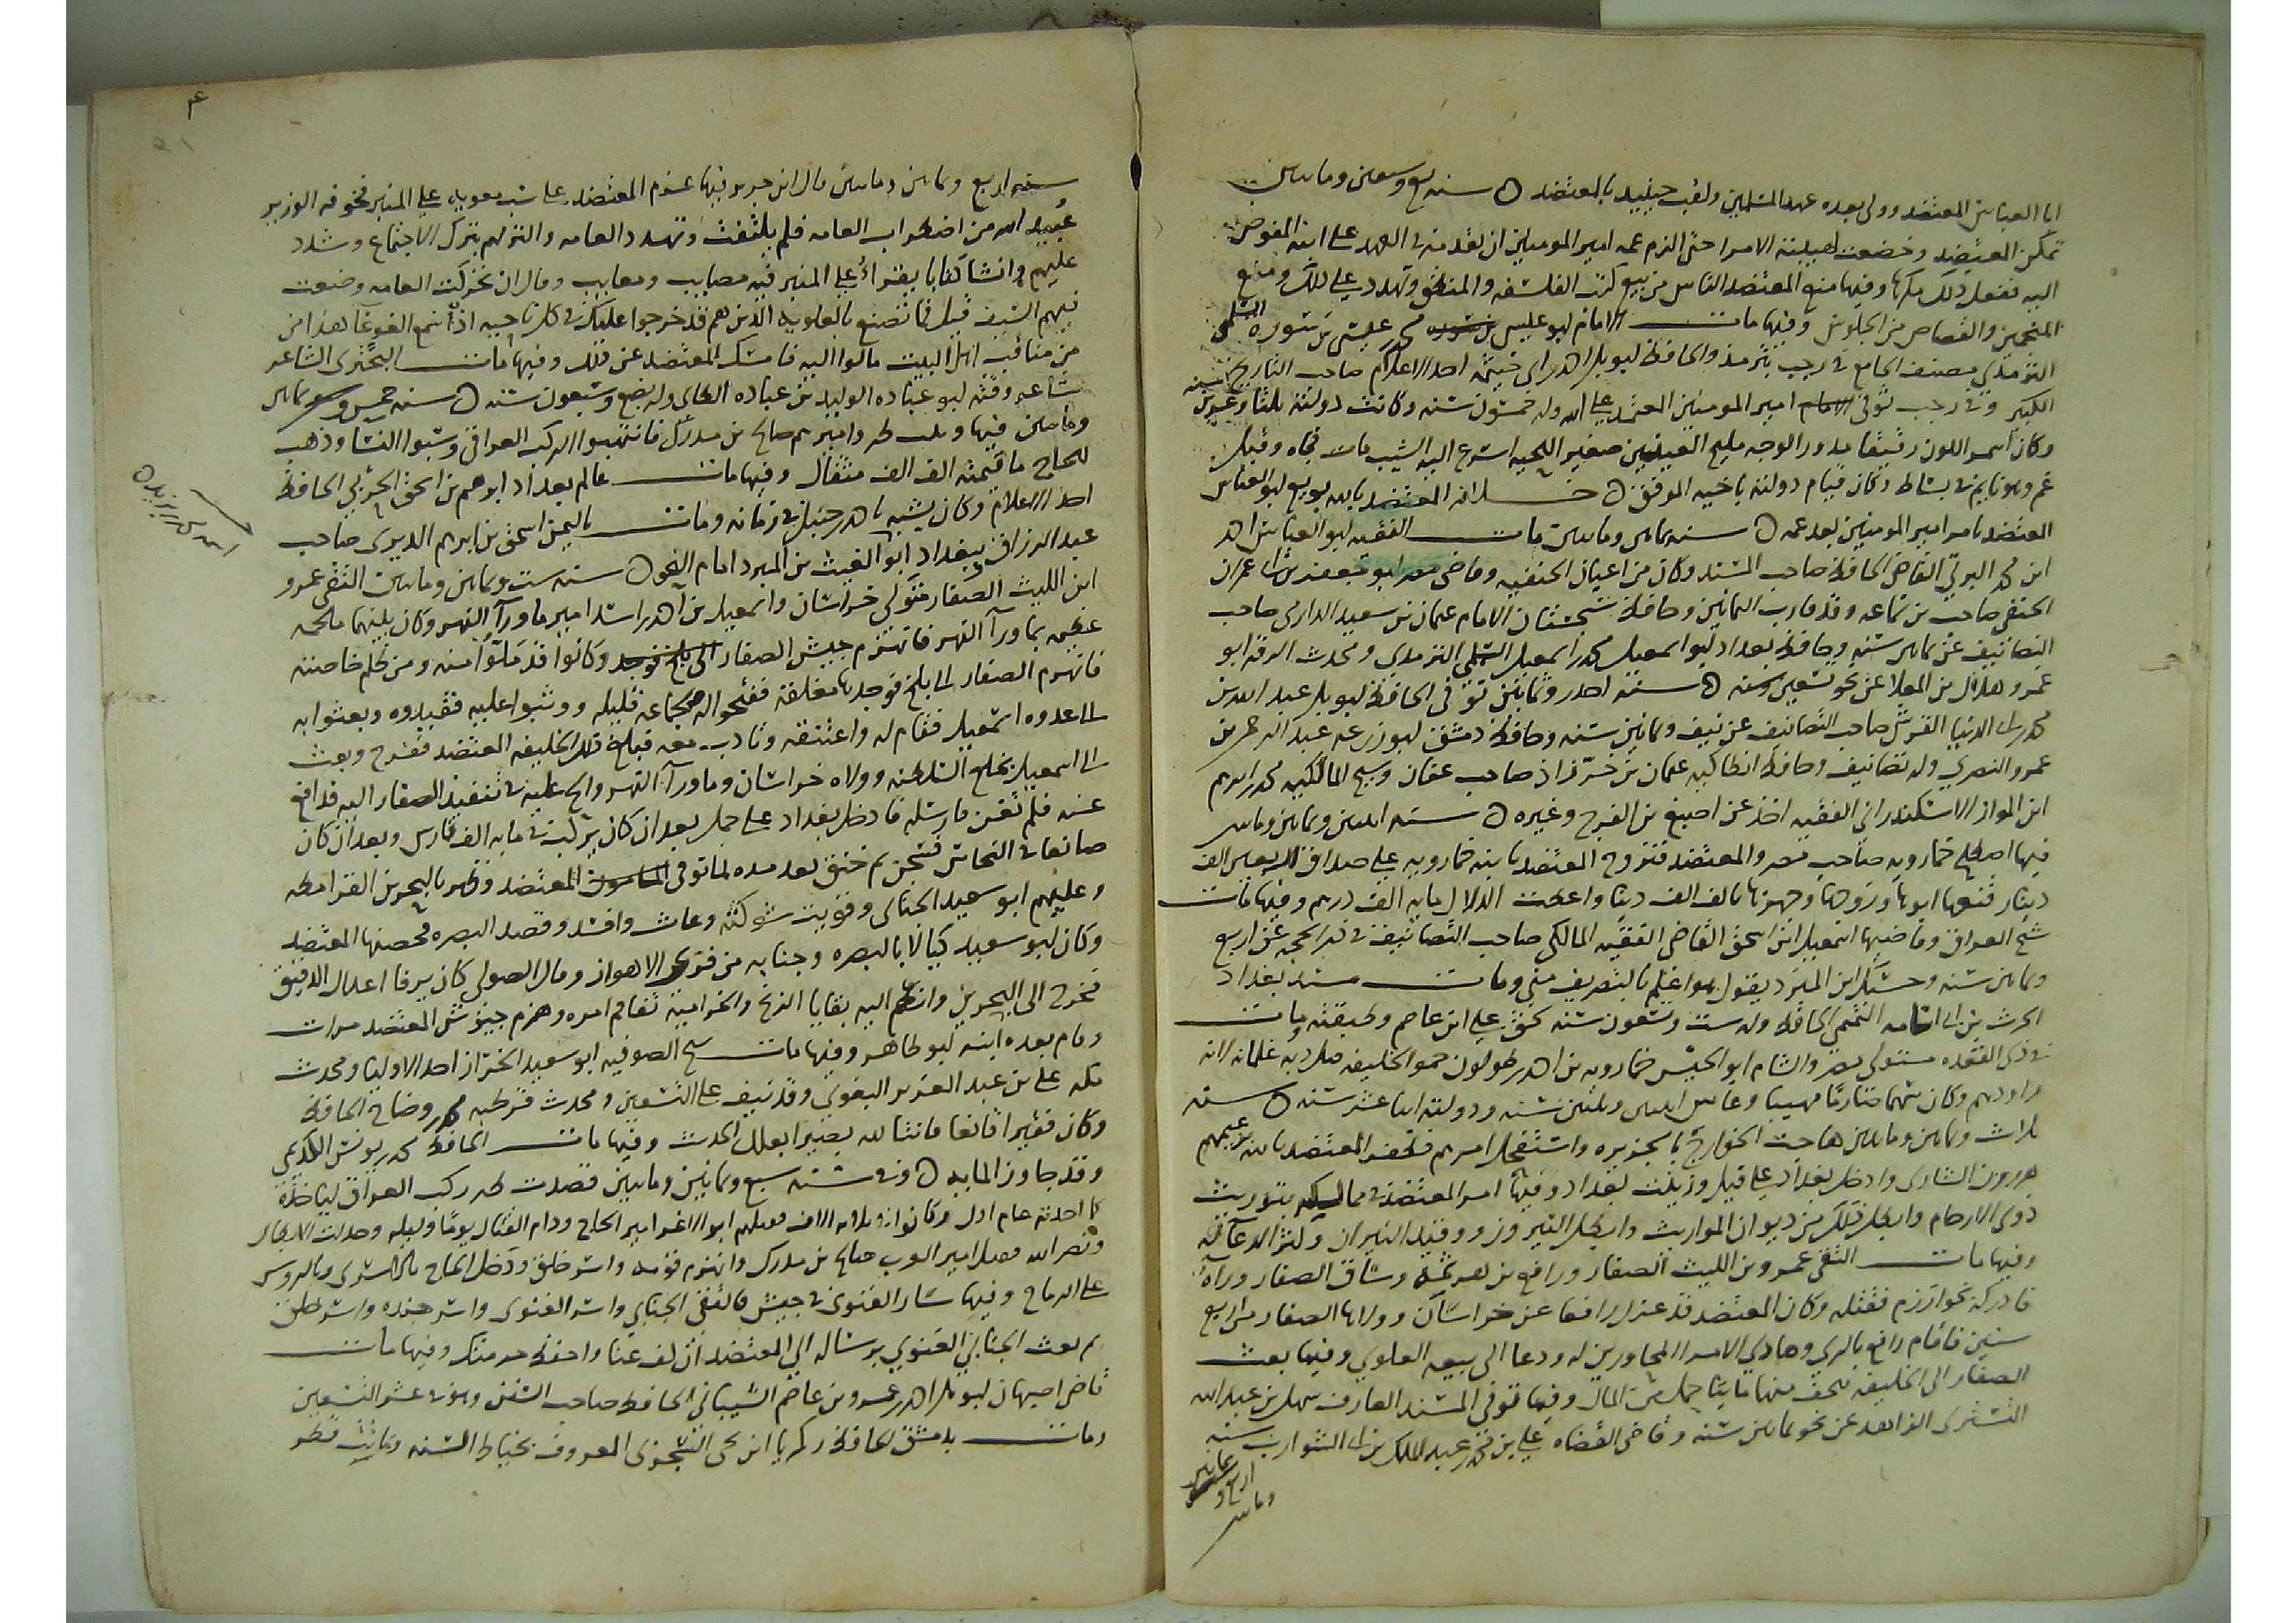 ابا العباس المعتضد وولى بعده عهد المسلمين ولقب حينيد بالمعتضد ه سنه تسع وسبعين ومايتين
تمكن المعتضد وخضعت لهيبته الامرا حتى الزم عمه امير المومنين ان يقدمه في العهد على ابنه المفوض
اليه ففعل ذلك مكرها وفيها منع المعتضد الناس من بيع كتب الفلسفه والمنطق وتهدد على ذلك ومنع
المنجمين والقصاص من الجلوس وفيها مات الامام ابو عيسى محمد بن عيسى بن سوره السلمي
الترمذي مصنف الجامع في رجب بترمذ والحافظ ابو بكر احمد بن ابي خيثمه احد الاعلام صاحب التاريخ
الكبير وفي رجب توفي امير المومنين المعتمد على الله وله خمسون سنه وكانت دولته ثلثا وعشرين سنه
وكان اسمر اللون رقيقا مدور الوجه مليح العينين صغير اللحيه اسرع اليه الشيب مات فجاه وقيل
غم وهو نايم في بساط وكان قيام دولته باخيه الموفق ه خلافه المعتضد بالله بويع ابو العباس
المعتضد بامر امير المومنين بعد عمه ه سنه ثمانين ومايتين مات الفقيه ابو العباس احمد
ابن محمد البرتي القاضي الحافظ صاحب المسند وكان من اعيان الحنفيه وقاضي مصر ابو جعفر بن ابي عمران
الحنفي صاحب بن سماعه وقد قارب الثمانين وحافظ سجستان الامام عثمان بن سعيد الدارمي صاحب
التصانيف عن ثمانين سنه وحافظ بغداد ابو اسمعيل محمد بن اسمعيل السلمي الترمذي ومحدث الرقه ابو
عمر هلال بن العلا عن نحو تسعين سنه ه سنه احدى وثمانين توفي الحافظ ابو بكر عبد الله بن
محمد بن ابي الدنيا القرشي صاحب التصانيف عن نيف وثمانين سنه وحافظ دمشق ابو زرعه عبد الرحمن بن
عمرو النصري وله تصانيف وحافظ انطاكيه عثمان بن خرزاذ صاحب عفان وشيخ المالكيه محمد بن ابرهيم
ابن المواز الاسكندراني الفقيه اخذ عن اصبغ بن الفرج وغيره ه سنه اثنين وثمانين ومايتين
فيها اصطلح خمارويه صاحب مصر والمعتضد فتزوج المعتضد بابنه خمارويه على صداق اربعين الف
دينار فنعها ابوها وزوجها وجهزها بالف الف دينار واعطت الدلال مايه الف درهم وفيها مات
شيخ العراق وقاضيها اسمعيل بن اسحق القاضي الفقيه المالكي صاحب التصانيف في ذي الحجه عن اربع
وثمانين سنه وحسبك ان المبرد يقول هو اعلم بالتصريف مني ومات مسند بغداد
الحرث بن ابي اسامه التميمي الحافظ وله ست وتسعون سنه كمن على ابن عاصم وطبقته ومات
في ذي القعده متولي مصر والشام ابو الجيش خمارويه بن احمد بن طولون حمو الخليفه فتك به غلمانه لانه
راودهم وكان شهما صارما مهيبا وعاش اثنين وثلثين سنه ودولته اثنا عشر سنه ه سنه
ثلاث وثمانين ومايتين هاجت الخوارج بالجزيره واستفحل امرهم فظفر المعتضد بالله بزعيمهم
هرون الشاري وادخل بغداد على فيل وزينت بغداد وفيها امر المعتضد في ممالكه بتوريث
ذوي الارحام وابطل ذلك من ديوان المواريث وابطل النيروز ووقيد النيران وكثر الدعا له
وفيها مات التقى عمرو بن الليث الصفار ورافع بن هرثمه وساق الصفار وراه
فادركه بخوارزم فقتله وكان المعتضد قد عزل رافعا عن خراسان وولاها الصفار من اربع
سنين فاقام رافع بالري وهادي الامرا المجاورين له ودعا الى بيعه العلوي وفيها بعث
الصفار الى الخليفه بتحف منها مايتا حمل من المال وفيها توفي السند العارف سهل بن عبد الله
التستري الزاهد عن نحو ثمانين سنه وقاضي القضاه علي بن محمد بن عبد الملك بن ابي الشوارب سنه
اربع وثمانين
ومايتين
٤
سنه اربع وثمانين ومايتين قال ابن جرير فيها عزم المعتضد على سب معويه على المنبر فخوفه الوزير
عبيد الله من اضطراب العامه فلم يلتفت وتهدد العامه والزمهم بترك الاجتماع وشدد
عليهم وانشا كتابا يقراه على المنبر فيه مصايب ومعايب وقال ان تحركت العامه وضعت
فيهم السيف قيل فما تصنع بالعلويه الذين هم قد خرجوا عليك في كل ناحيه اذا سمع الغوغا هذا من
من مناقب اهل البيت مالوا اليه فامسك المعتضد عن ذلك وفيها مات البحتري الشاعر
شاعر وقته ابو عباده الوليد بن عباده الطاي وله بضع وسبعون سنه ه سنه خمس وثمانين
ومايتين فيها وثب طي واميرهم صالح بن مدرك فانتهبوا الركب العراقي وسبوا النسا وذهب
للحاج ما قيمته الف الف مثقال وفيها مات عالم بغداد ابرهيم بن اسحق الحربي الحافظ
احد الاعلام وكان يشبه باحمد بن حنبل في زمانه ومات باليمن اسحق بن ابرهيم الدبري صاحب
عبد الرزاق وببغداد ابو العباس بن المبرد امام النحو ه سنه ست وثمانين ومايتين التقى عمرو
ابن الليث الصفار متولي خراسان واسمعيل بن احمد بن اسد امير ما ورآ النهر وكان بينهما ملحمه
عظيمه بما ورآ النهر فانهزم جيش الصفار وكانوا قد ملوا منه ومن ظلم خاصته
فانهزم الصفار الى بلخ فوجدها مغلقه ففتحوا له ولجماعه قليله ووثبوا عليه فقيدوه وبعثوا به
الى عدوه اسمعيل فقام له واعتنقه وتادب معه فبلغ ذلك الخليفه المعتضد ففرح وبعث
الى اسمعيل بخلع السلطنه وولاه خراسان وما ورآ النهر والح عليه في تنفيذ الصفار اليه فدافع
عنه فلم تغن فارسله فادخل بغداد على جمل بعد ان كان يركب في مايه الف فارس وبعد ان كان
صانعا في النحاس فسجن ثم خنق بعد مده لما توفي المعتضد وظهر بالبحرين القرامطه
وعليهم ابو سعيد الجنابي وقويت شوكته وعاث وافسد وقصد البصره فحصنها المعتضد
وكان ابو سعيد كيالا بالبصره وجنابه من قرى الاهواز وقال الصولي كان يرفا اعدال الدقيق
فخرج الى البحرين وانضم اليه بقايا الزنج والحراميه تفاقم امره وهزم جيوش المعتضد مرات
وقام بعده ابنه ابو طاهر وفيها مات شيخ الصوفيه ابو سعيد الخراز احد الاوليا ومحدث
مكه علي بن عبد العزيز البغوي وقد نيف على التسعين ومحدث قرطبه محمد بن وضاح الحافظ
وكان فقيرا قانعا قانتا لله بصيرا بعلل الحديث وفيها مات الحافظ محمد بن يونس الكديمي
وقد جاوز المايه ه وفي سنه سبع وثمانين ومايتين قصدت طي ركب العراق لياخذه
كما اخذته عام اول وكانوا ثلاثه الاف فعبلهم ابو الاغر امير الحاج ودام القتال يوما وليله وجدلت الابطال
ونصر الله فقتل امير العرب صالح بن مدرك وانهزم قومه واسر خلق ودخل الحاج بالاسرى وبالروس
على الرماح وفيها سار الغنوي في جيش فالتقى الجنابي واسر الغنوي واسر جنده واسر خلق
ثم بعث الجنابي الغنوي برساله الى المعتضد ان كف عنا واحفظ حرمتك وفيها مات
قاضي اصبهان ابو بكر احمد بن عمرو بن عاصم الشيباني الحافظ صاحب السنن وهو في عشر التسعين
ومات بدمشق الحافظ زكريا ابن يحيى السجزي المعروف بخياط السنه وماتت قطر